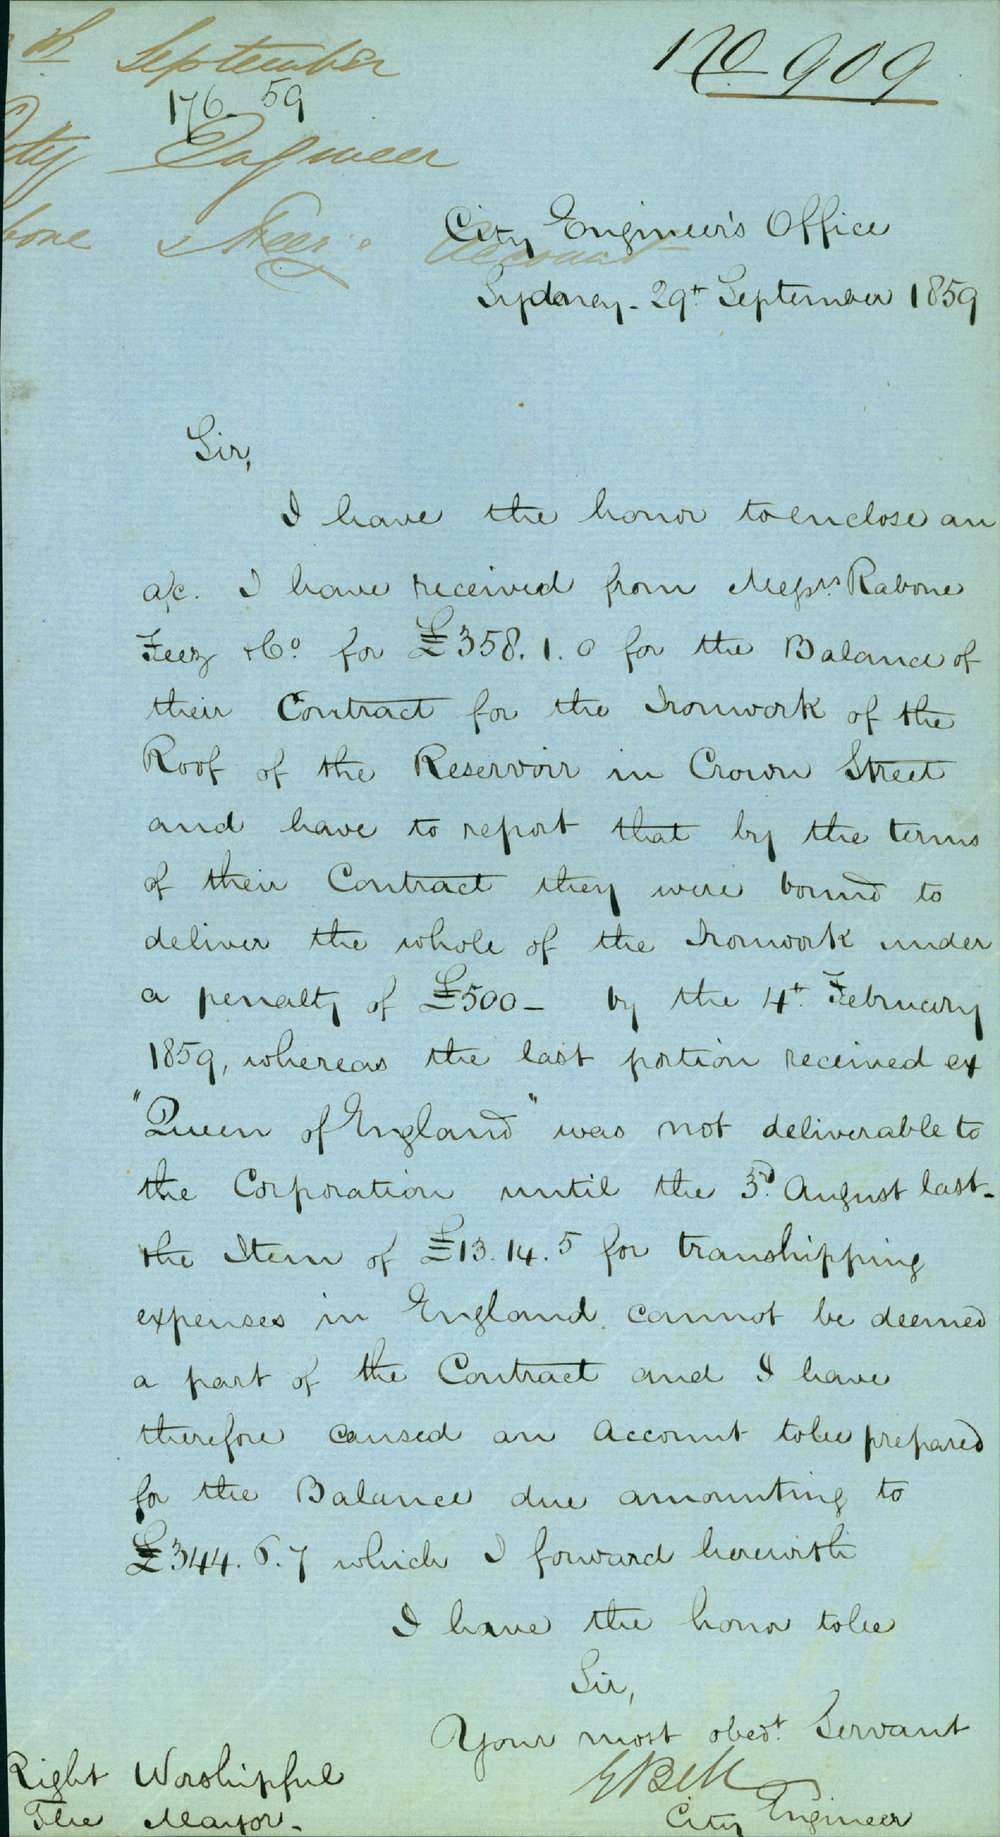 th September
No 909
176 59
City Engineer
Rabone Feez & Account
City Engineer's Office
Sydney - 29th September 1859
Sir,
I have the honor to enclose an
a/c. I have received from Messrs. Rabone
Feez & Co. for £358. 1. 0 for the Balance of
their Contract for the Ironwork of the
Roof of the Reservoir in Crown Street
and have to report that by the terms
of their Contract they were bound to
deliver the whole of the Ironwork under
a penalty of £500 - by the 4th February
1859, whereas the last portion received ex
"Queen of England" was not deliverable to
the Corporation until the 3d. August last -
the Item of £13. 14. 5 for transhipping
expenses in England cannot be deemed
a part of the Contract and I have
therefore caused an Account to be prepared
for the Balance due amounting to
£344. 6. 7 which I forward herewith
I have the honor to be
Sir,
Your most obedt. Servant
E Bell
City Engineer
Right Worshipful
The Mayor -